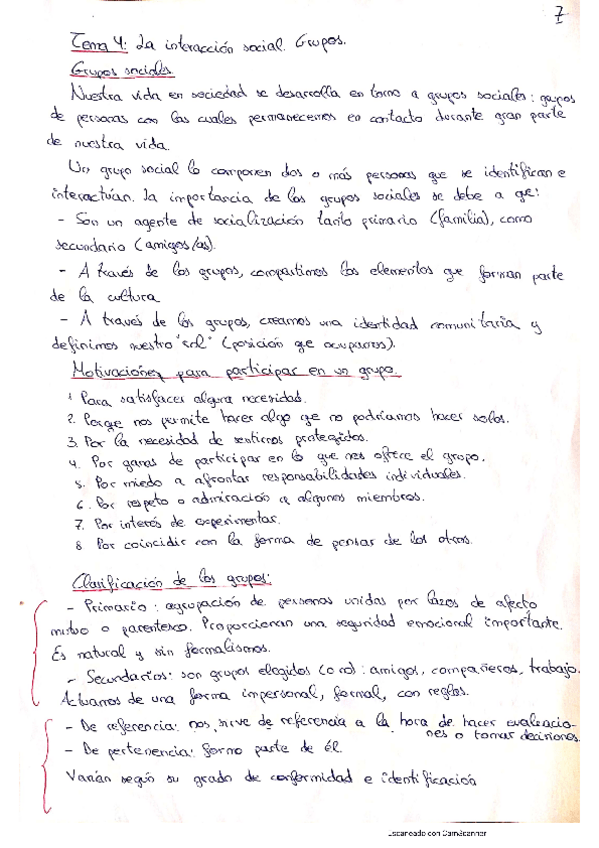 7
Tema 4: La interacción social. Grupos.
Grupos sociales.
Nuestra vida en sociedad se desarrolla en torno a grupos sociales: grupos
de personas con las cuales permanecemos en contacto durante gran parte
de nuestra vida.
Un grupo social lo componen dos o más personas que se identifican e
interactúan. La importancia de los grupos sociales se debe a qe:
- Son un agente de socialización tanto primario (familia), como
secundario (amigos/as).
- A través de los grupos, compartimos los elementos que forman parte
de la cultura
- A través de los grupos, creamos una identidad comunitaria y
definimos nuestro "rol" (posición qe ocupamos).
Motivaciones para participar en un grupo.
1 Para satisfacer alguna necesidad.
2. Porque nos permite hacer algo qe no podríamos hacer solos.
3. Por la necesidad de sentirnos protegidos.
4. Por ganas de participar en lo que nos ofrece el grupo.
5. Por miedo a afrontar responsabilidades individuales.
6. Por respeto o admiración a algunos miembros.
7. Por interés de experimentar.
8 Por coincidir con la forma de pensar de los otros.
Clasificación de los grupos:
- Primario: agrupación de personas unidas por lazos de afecto
mutuo o parentesco. Proporcionan una seguridad emocional importante.
Es natural y sin formalismos.
- Secundarios: son grupos elegidos (o no): amigos, compañeros, trabajo.
Actuamos de una forma impersonal, formal, con reglas.
- De referencia: nos sirve de referencia a la hora de hacer evaluacio-
nes o tomar decisiones.
- De pertenencia: formo parte de él.
Varían según su grado de conformidad e identificación
Escaneado con CamScanner